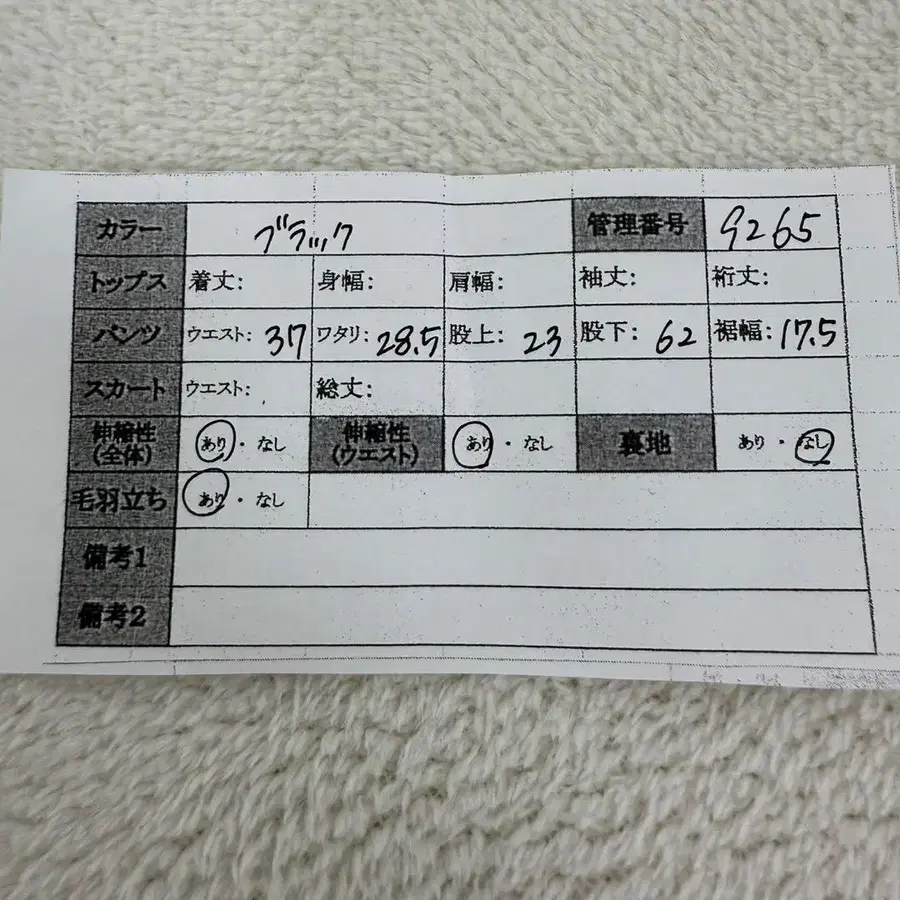 カラー ブラック 管理番号 9265
トップス 着丈: 身幅: 肩幅: 袖丈: 裄丈:
パンツ ウエスト: 37 ワタリ: 28.5 股上: 23 股下: 62 裾幅: 17.5
スカート ウエスト: 総丈:
伸縮性(全体) あり・なし 伸縮性(ウエスト) あり・なし 裏地 あり・なし
毛羽立ち あり・なし
備考1
備考2